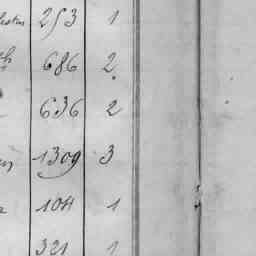 253 1
686 2
636 2
1309 3
104 1
321 1